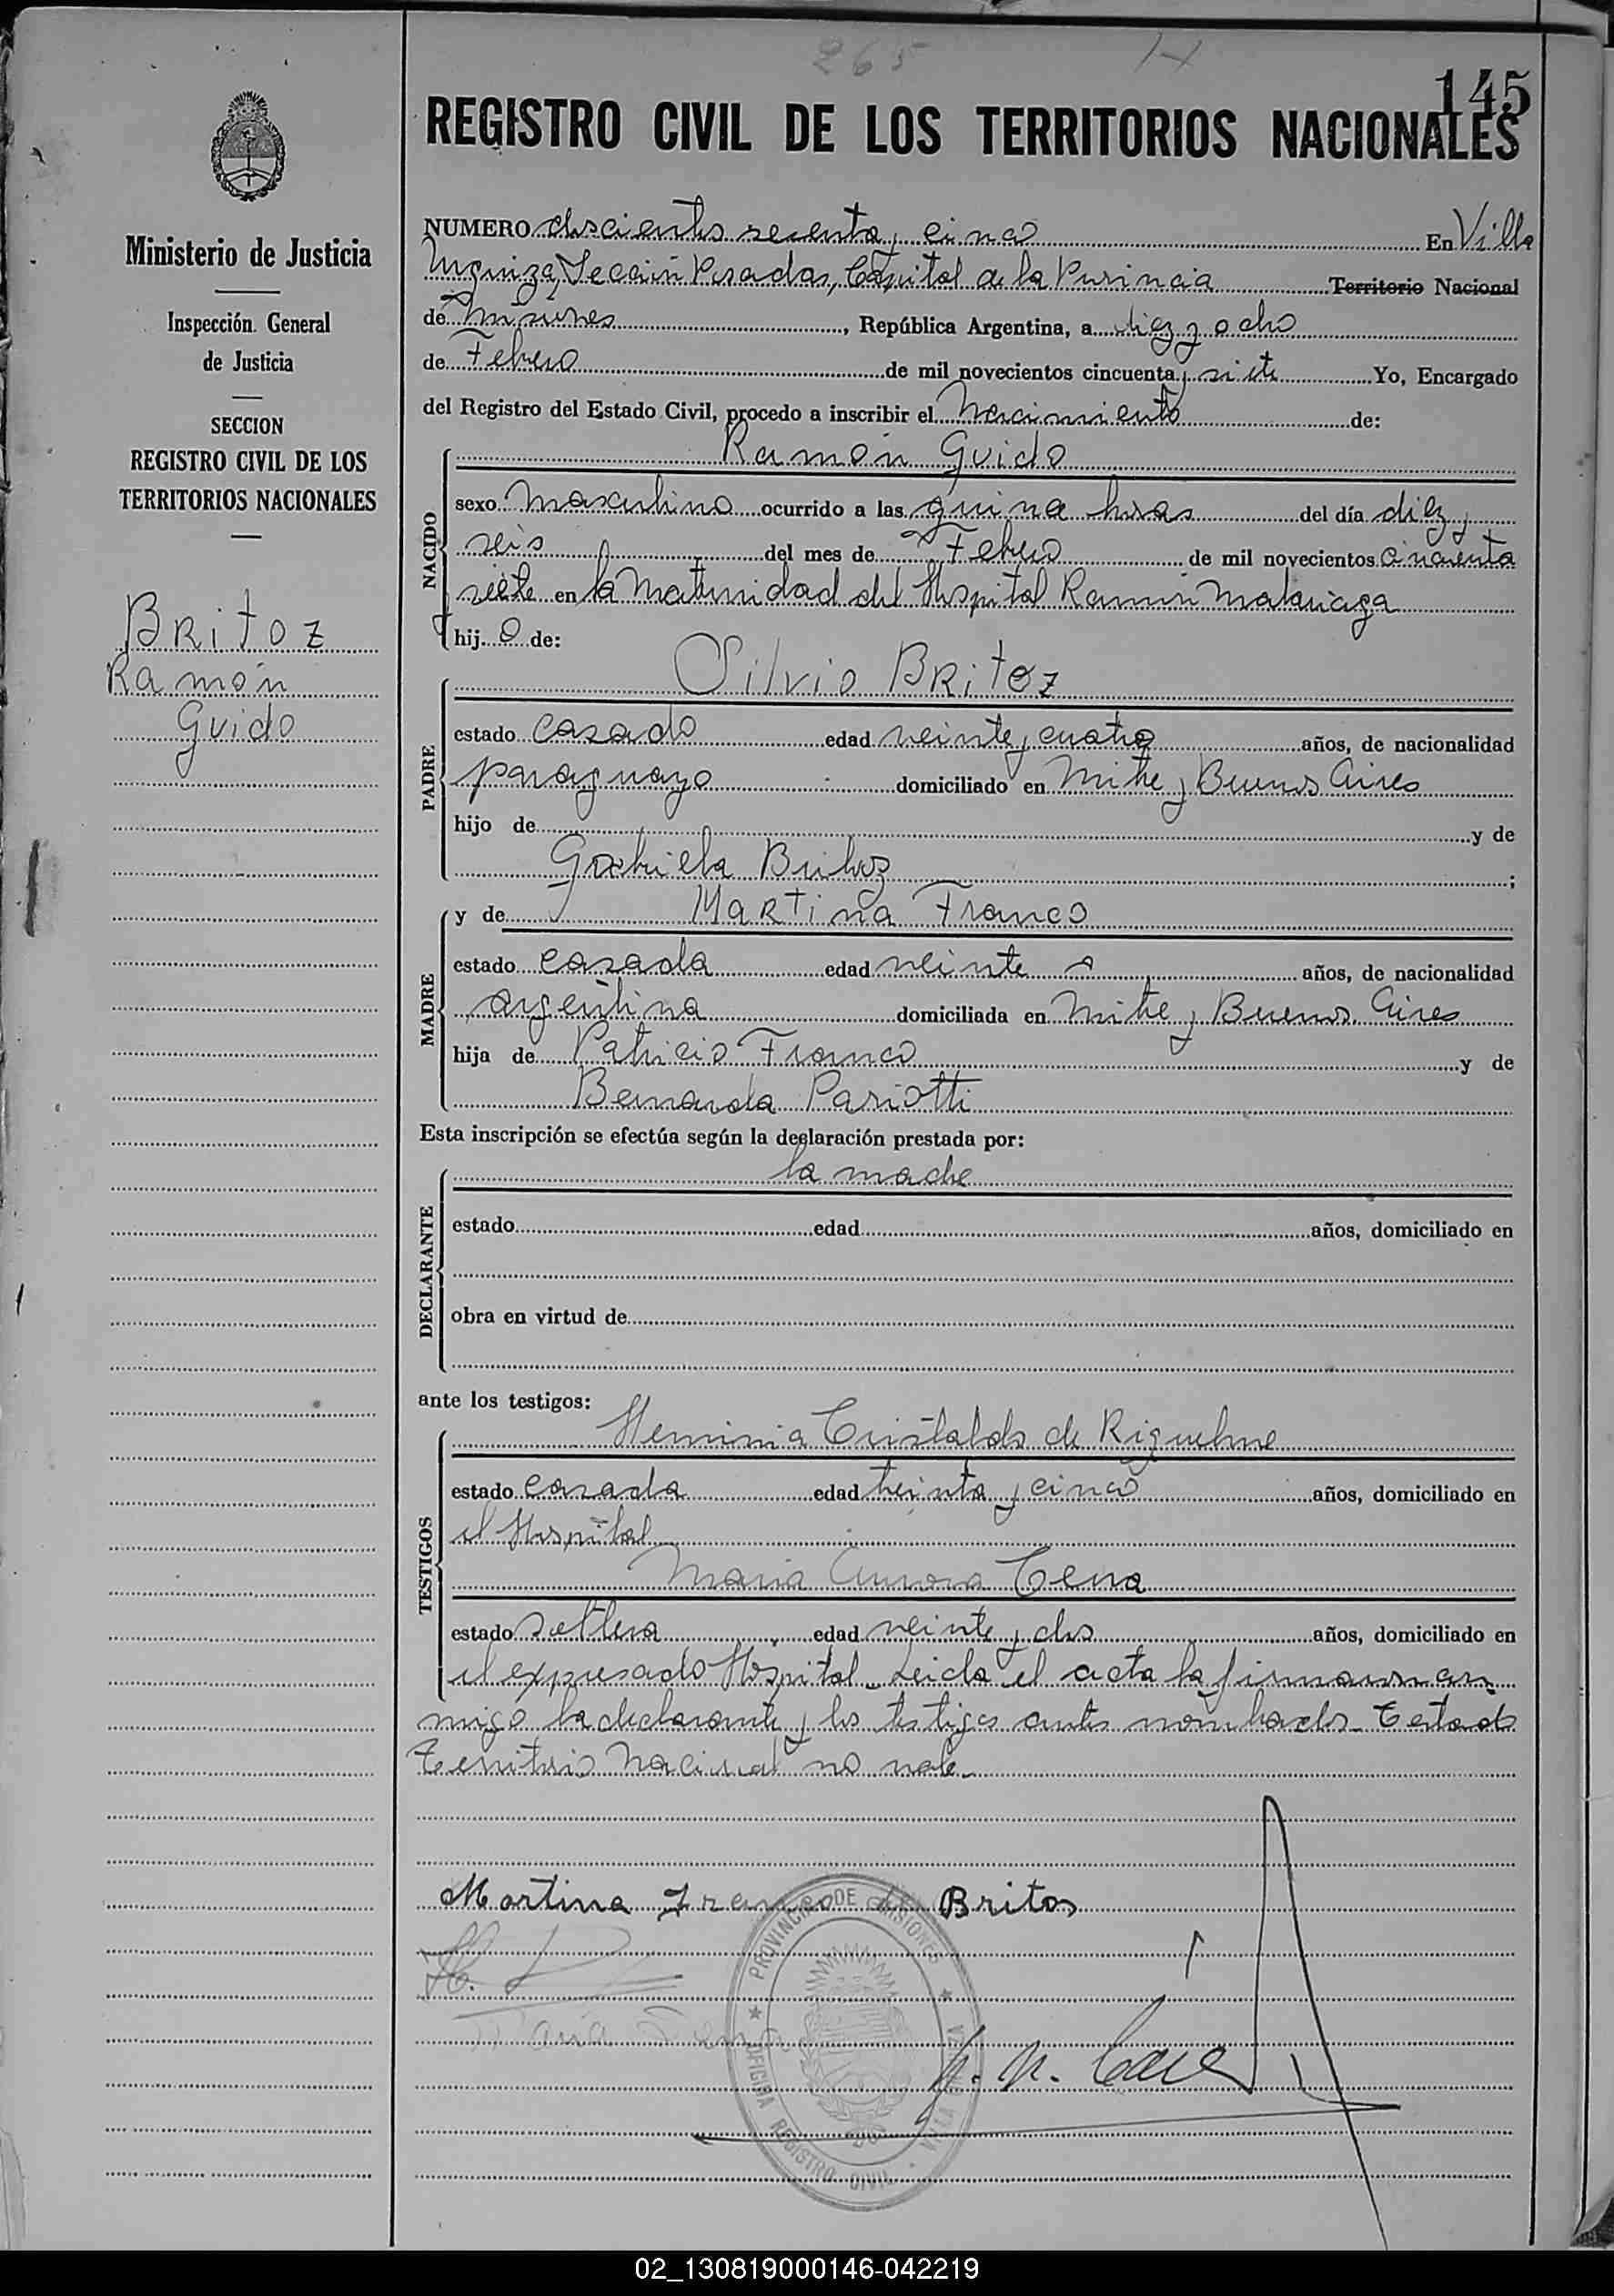 265
H
145
REGISTRO CIVIL DE LOS TERRITORIOS NACIONALES
Ministerio de Justicia
Inspección General
de Justicia
SECCION
REGISTRO CIVIL DE LOS
TERRITORIOS NACIONALES
BRitoz
Ramón
Guido
NUMERO doscientos secenta y cinco En Villa
Urquiza, Sección Posadas, Capital de la Provincia Territorio Nacional
de Misiones, República Argentina, a diez y ocho
de Febrero de mil novecientos cincuenta y siete Yo, Encargado
del Registro del Estado Civil, procedo a inscribir el Nacimiento de:
NACIDO
Ramón Guido
sexo masculino ocurrido a las quince horas del día diez y
seis del mes de Febrero de mil novecientos cincuenta
siete en la Maternidad del Hospital Ramón Madariaga
hijo de:
PADRE
Silvio BRitoz
estado casado edad veinte y cuatro años, de nacionalidad
paraguayo domiciliado en Mitre y Buenos Aires
hijo de y de
Gabriela Britoz ;
MADRE
y de MaRtina Franco
estado casada edad veinte años, de nacionalidad
argentina domiciliada en Mitre y Buenos Aires
hija de Patricio Franco y de
Bernarda Pariotti
Esta inscripción se efectúa según la declaración prestada por:
DECLARANTE
la madre
estado edad años, domiciliado en
obra en virtud de
ante los testigos:
TESTIGOS
Herminia Cristaldo de Riquelme
estado casada edad treinta y cinco años, domiciliado en
el Hospital
Maria Aurora Cena
estado soltera edad veinte y dos años, domiciliado en
el expresado Hospital. Leida el acta la firmaron con
migo la declarante y los testigos antes nombrados. Testado
Territorio Nacional no vale.
Martina Franco de Britos
H.
PROVINCIA DE MISIONES
OFICINA REGISTRO CIVIL
VILLA
02_130819000146-042219